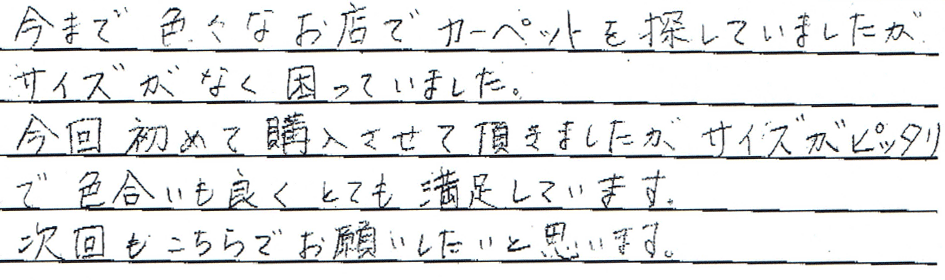 今まで色々なお店でカーペットを探していましたが
サイズがなく困っていました。
今回初めて購入させて頂きましたが、サイズがピッタリ
で色合いも良くとても満足しています。
次回もこちらでお願いしたいと思います。